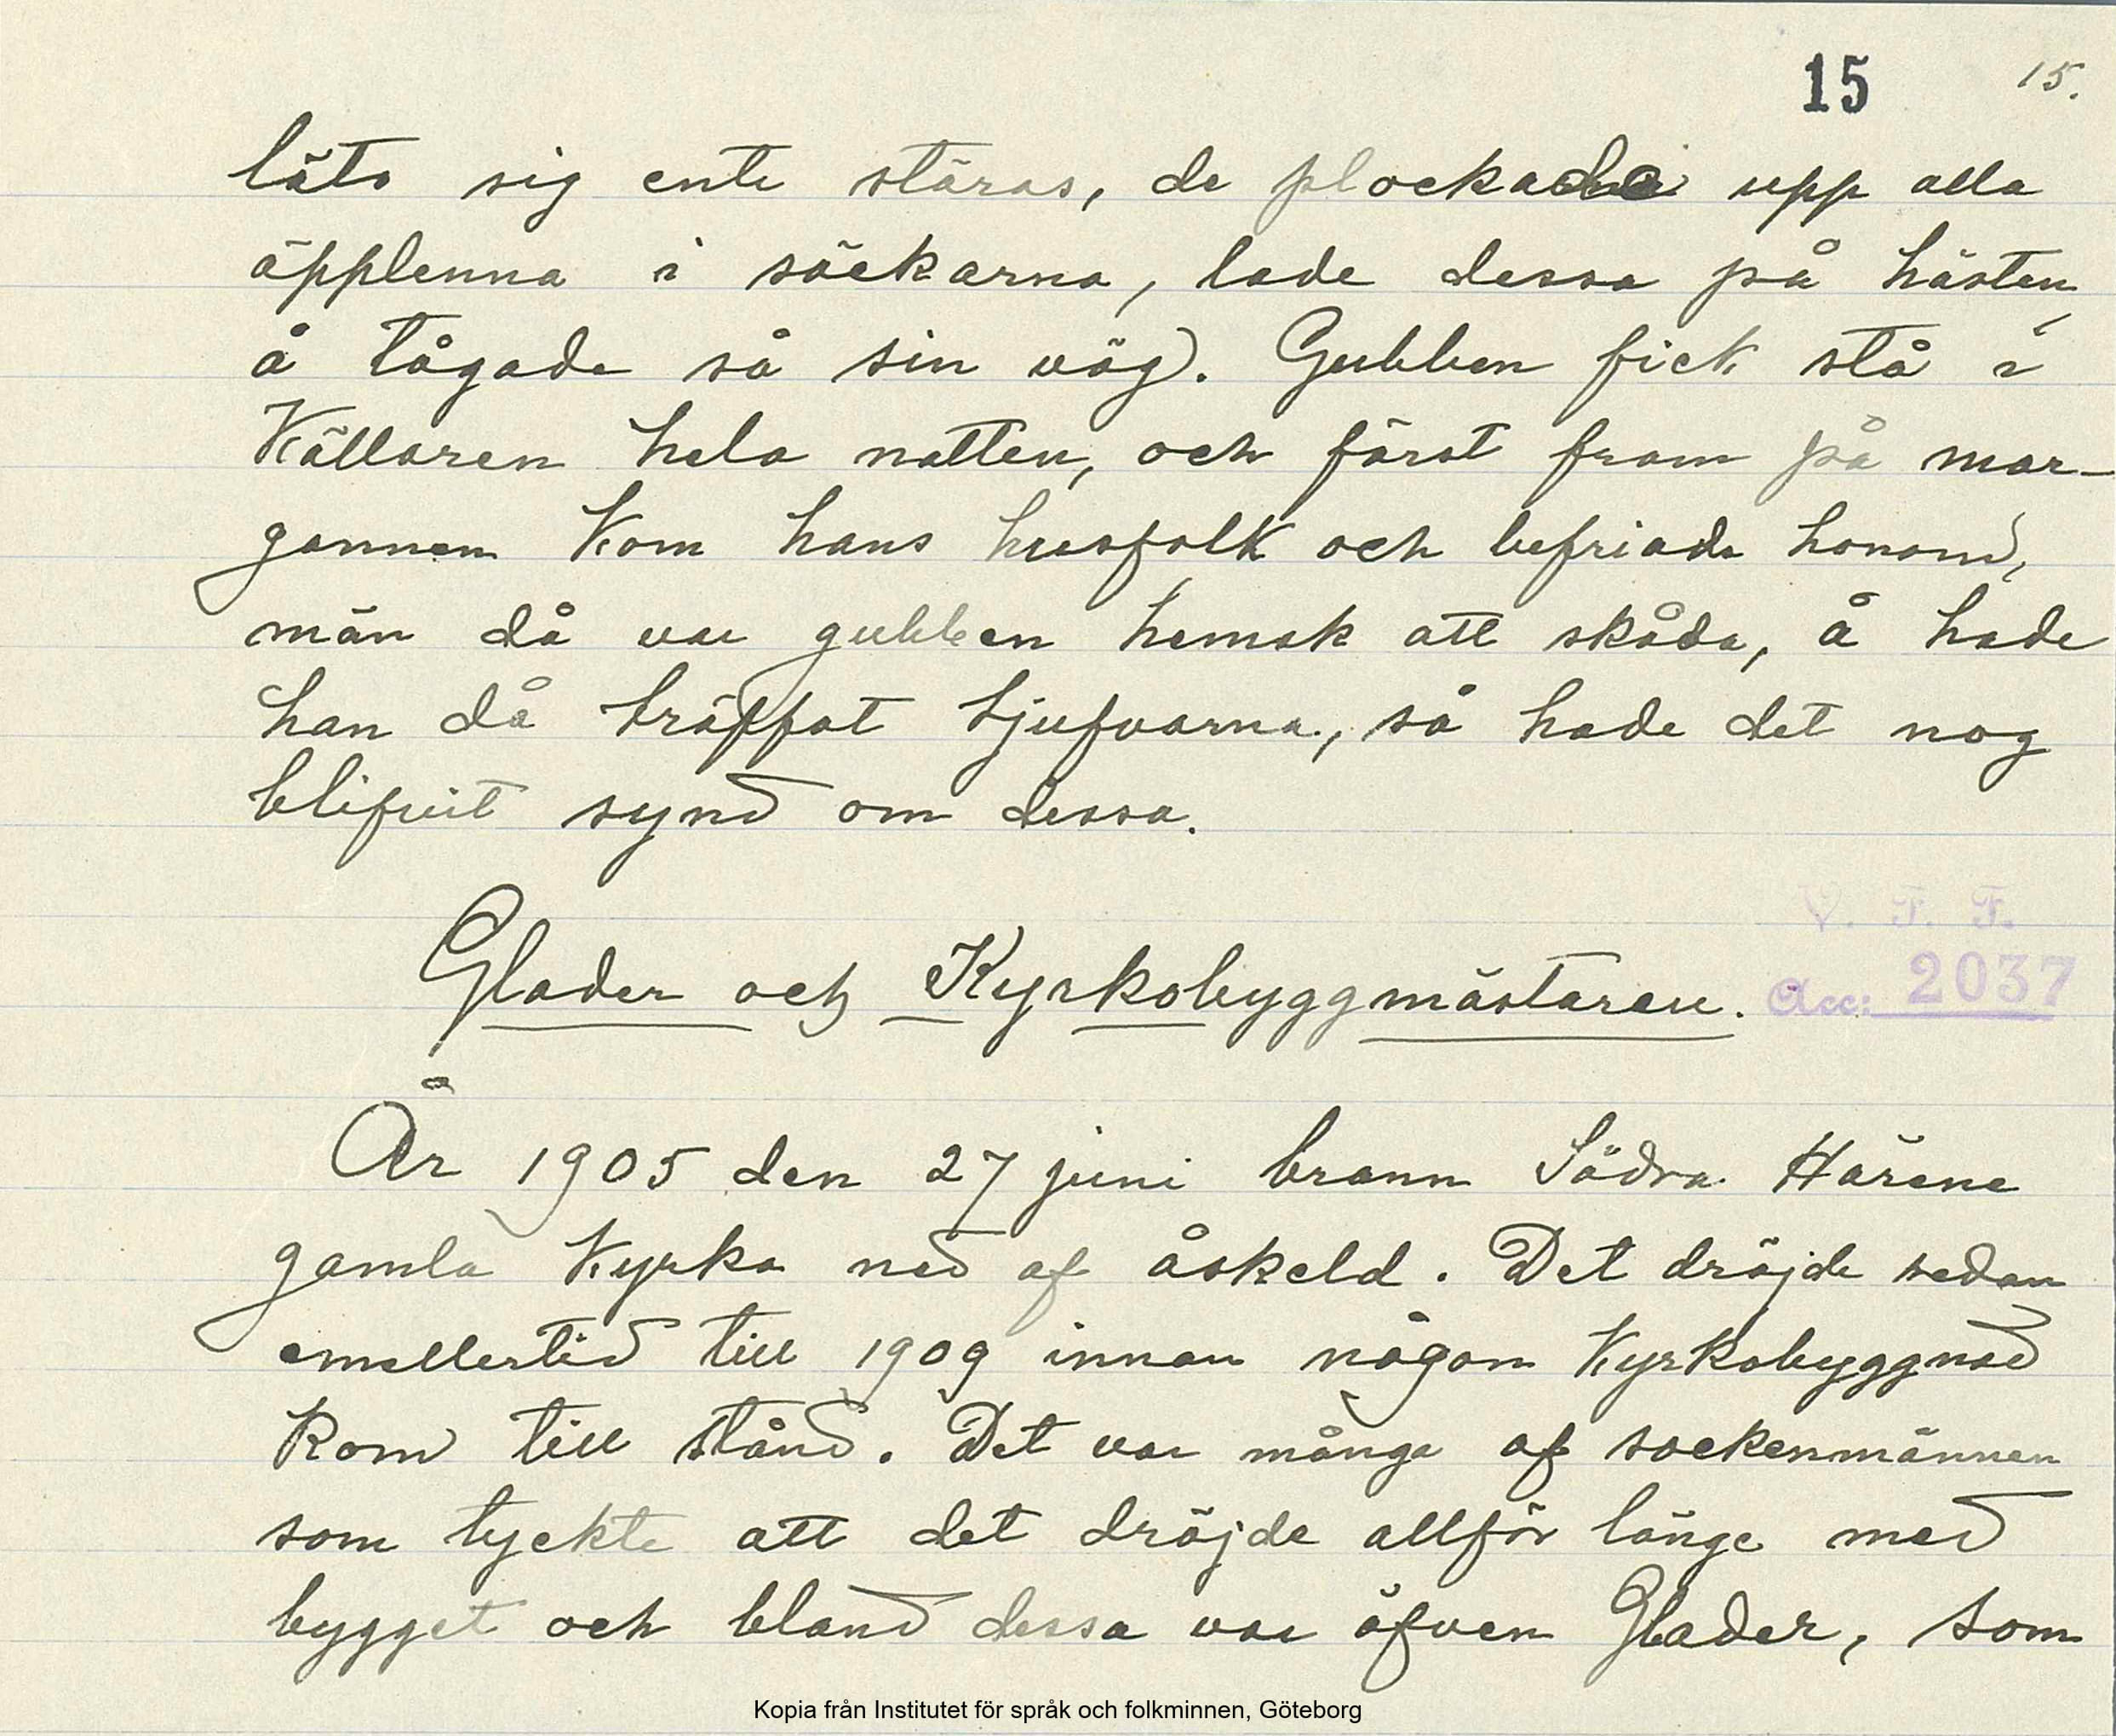 15 15.
läto sig ente störas, de plockade upp alla
äpplenna i säckarna, lade dessa på hästen,
å tågade så sin väg. Gubben fick stå i
Källaren hela natten, och först fram på mor-
gonnen Kom hans husfolk och befriade honom,
män då var gubben hemsk att skåda, å hade
han då träffat tjufvarna, så hade det nog
blifvit synd om dessa.
V. F. F.
Glader och Kyrkobyggmästaren. Acc: 2037
År 1905 den 27 juni brann Södra Härene
gamla Kyrka ned af åskeld. Det dröjde sedan
emellertid till 1909 innan någon Kyrkobyggnad
Kom till stånd. Det var många af sockenmännen
som tyckte att det dröjde allför länge med
bygget och bland dessa var äfven Glader, som
Kopia från Institutet för språk och folkminnen, Göteborg